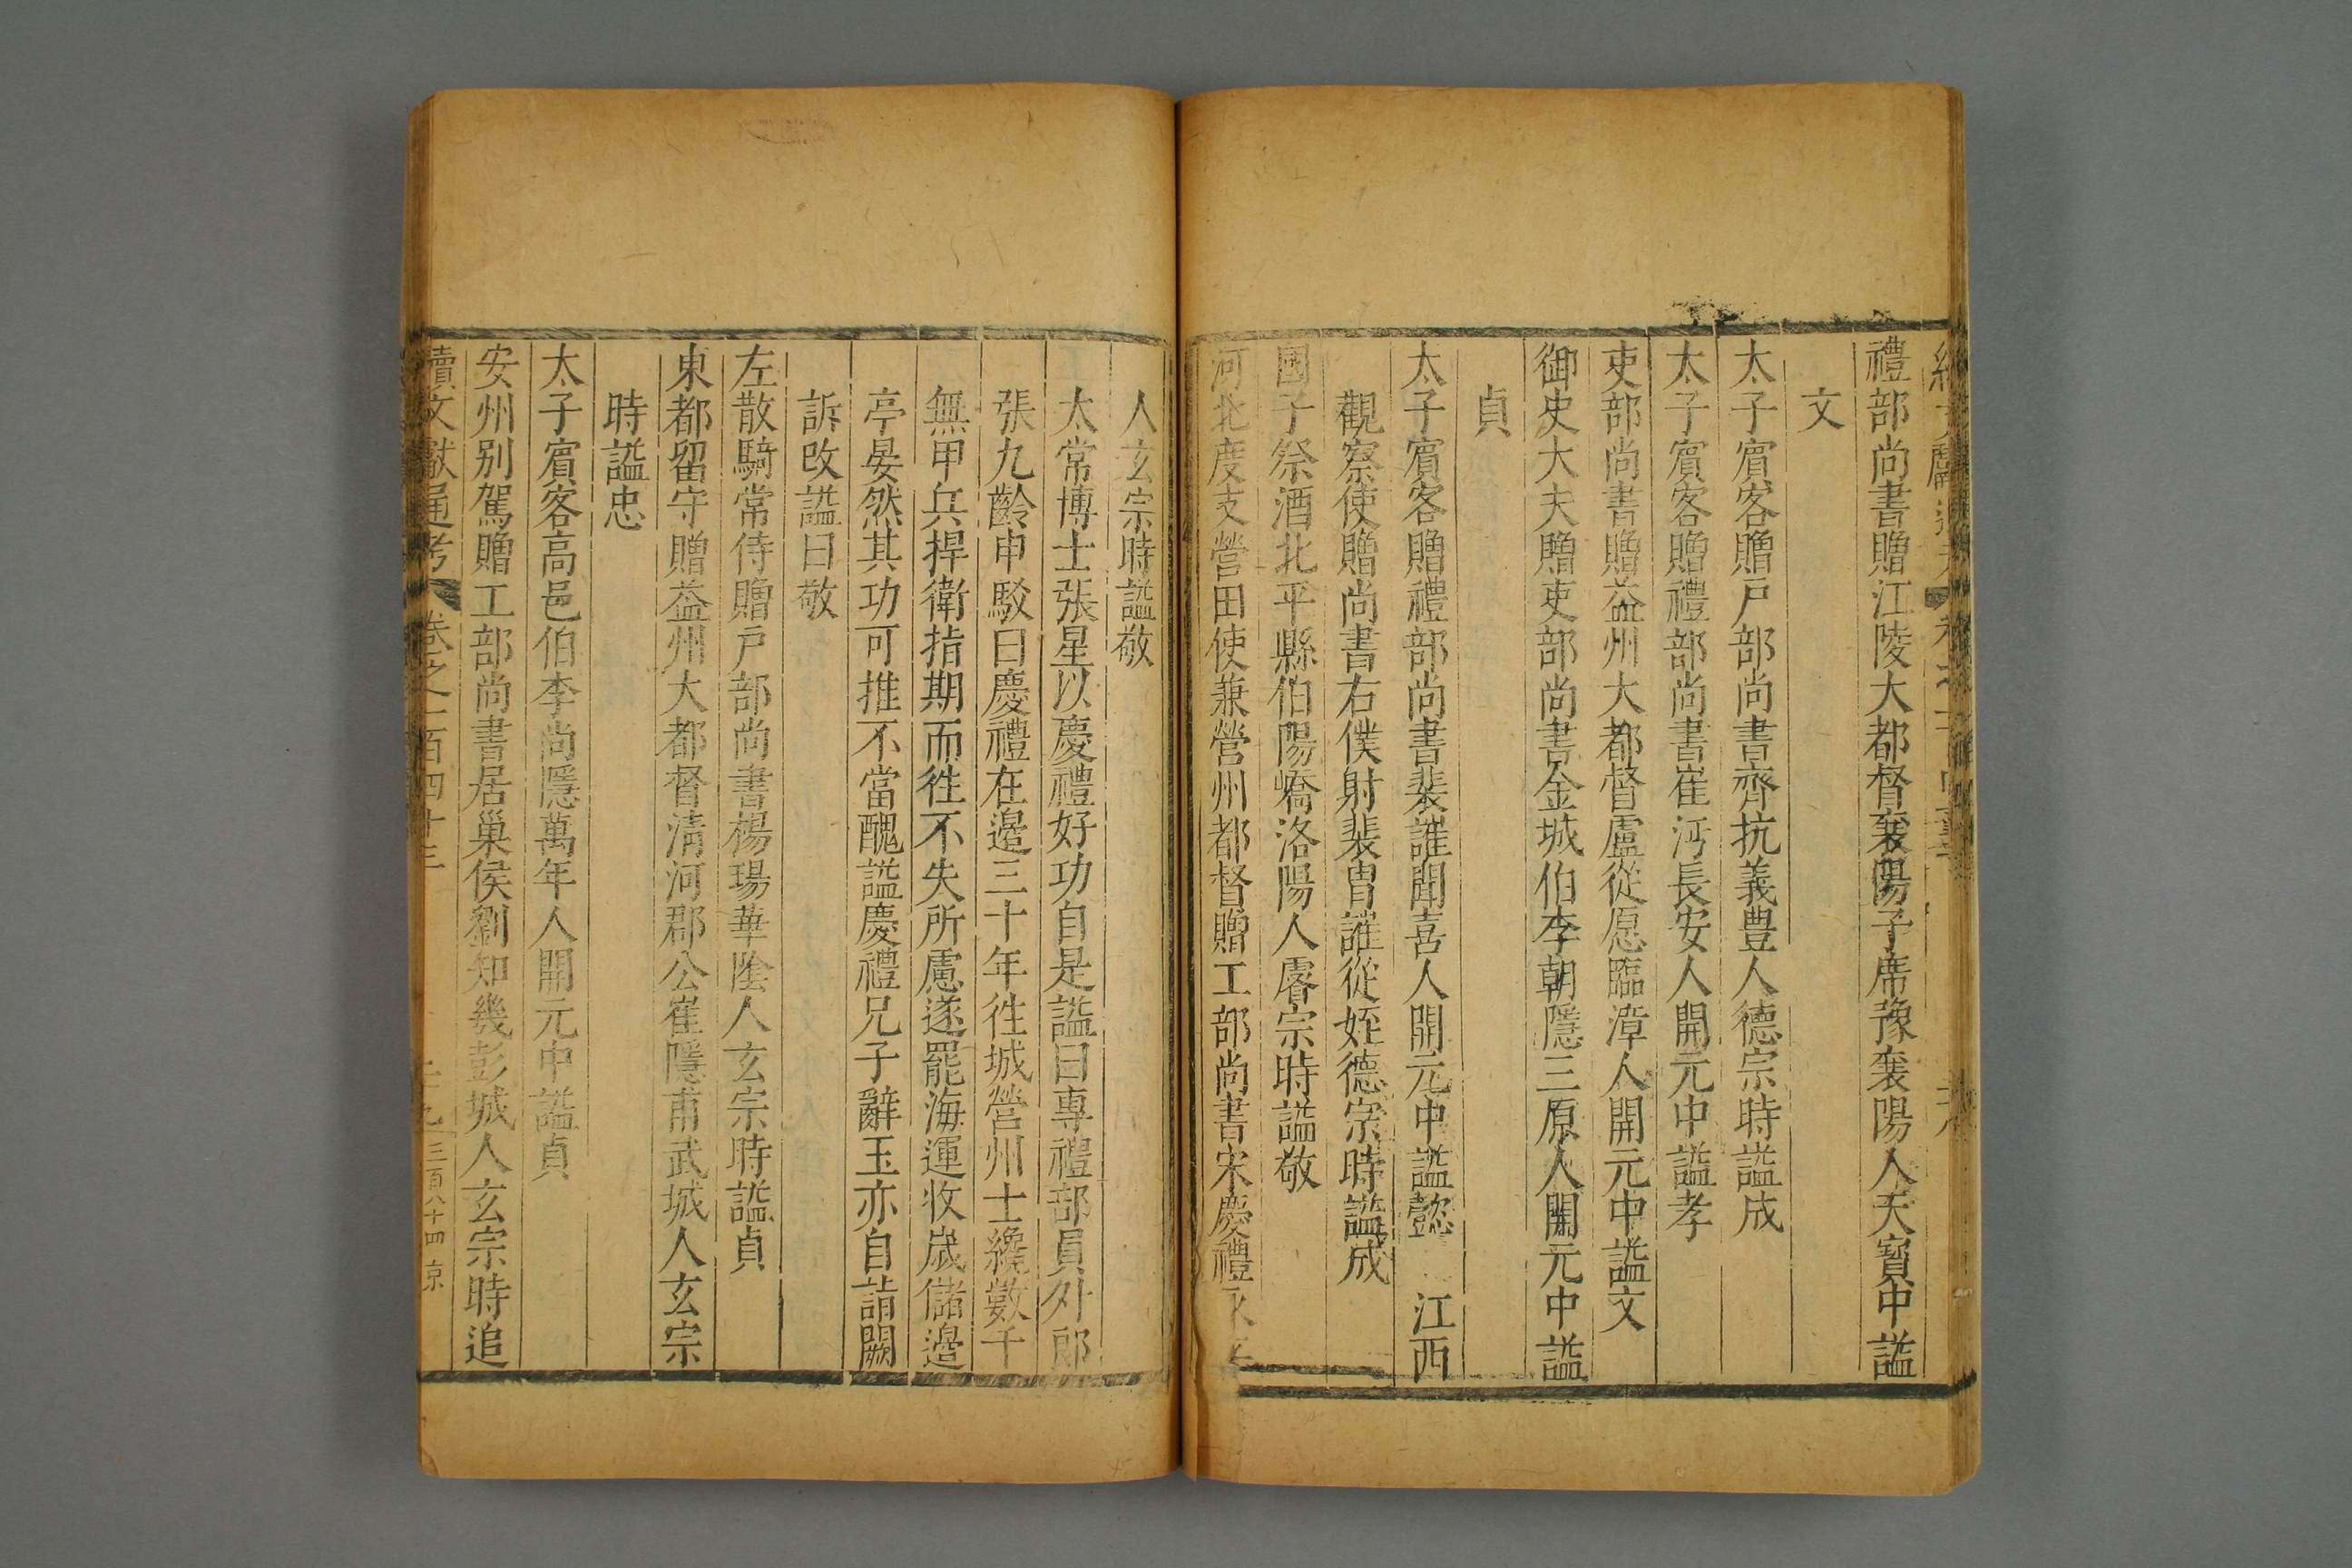 禮部尚書贈江陵大都督襄陽子席豫襄陽人天寶中謚
文
太子賓客贈戸部尚書齊抗義豊人德宗時謚成
太子賓客贈禮部尚書崔沔長安人開元中謚孝
吏部尚書贈益州大都督盧從愿臨漳人開元中謚文
御史大夫贈吏部尚書金城伯李朝隱三原人開元中謚
貞
太子賓客贈禮部尚書裴漼聞喜人開元中謚懿 江西
觀察使贈尚書右僕射裴胄漼從姪德宗時謚成
國子祭酒北平縣伯陽嶠洛陽人睿宗時謚敬
河北度支營田使兼營州都督贈工部尚書宋慶禮永年
人玄宗時謚敬
太常博士張星以慶禮好功自是謚曰專禮部員外郎
張九齡申駁曰慶禮在邊三十年徃城營州士纔數千
無甲兵捍衛指期而徃不失所慮遂罷海運收歲儲邊
亭晏然其功可推不當醜謚慶禮兄子辭玉亦自詣闕
訴改謚曰敬
左散騎常侍贈戸部尚書楊瑒華陰人玄宗時謚貞
東都留守贈益州大都督清河郡公崔隱甫武城人玄宗
時謚忠
太子賓客高邑伯李尚隱萬年人開元中謚貞
安州别駕贈工部尚書居巢侯劉知幾彭城人玄宗時追
續文獻通考 卷之一百四十三 二十九 三百八十四 京